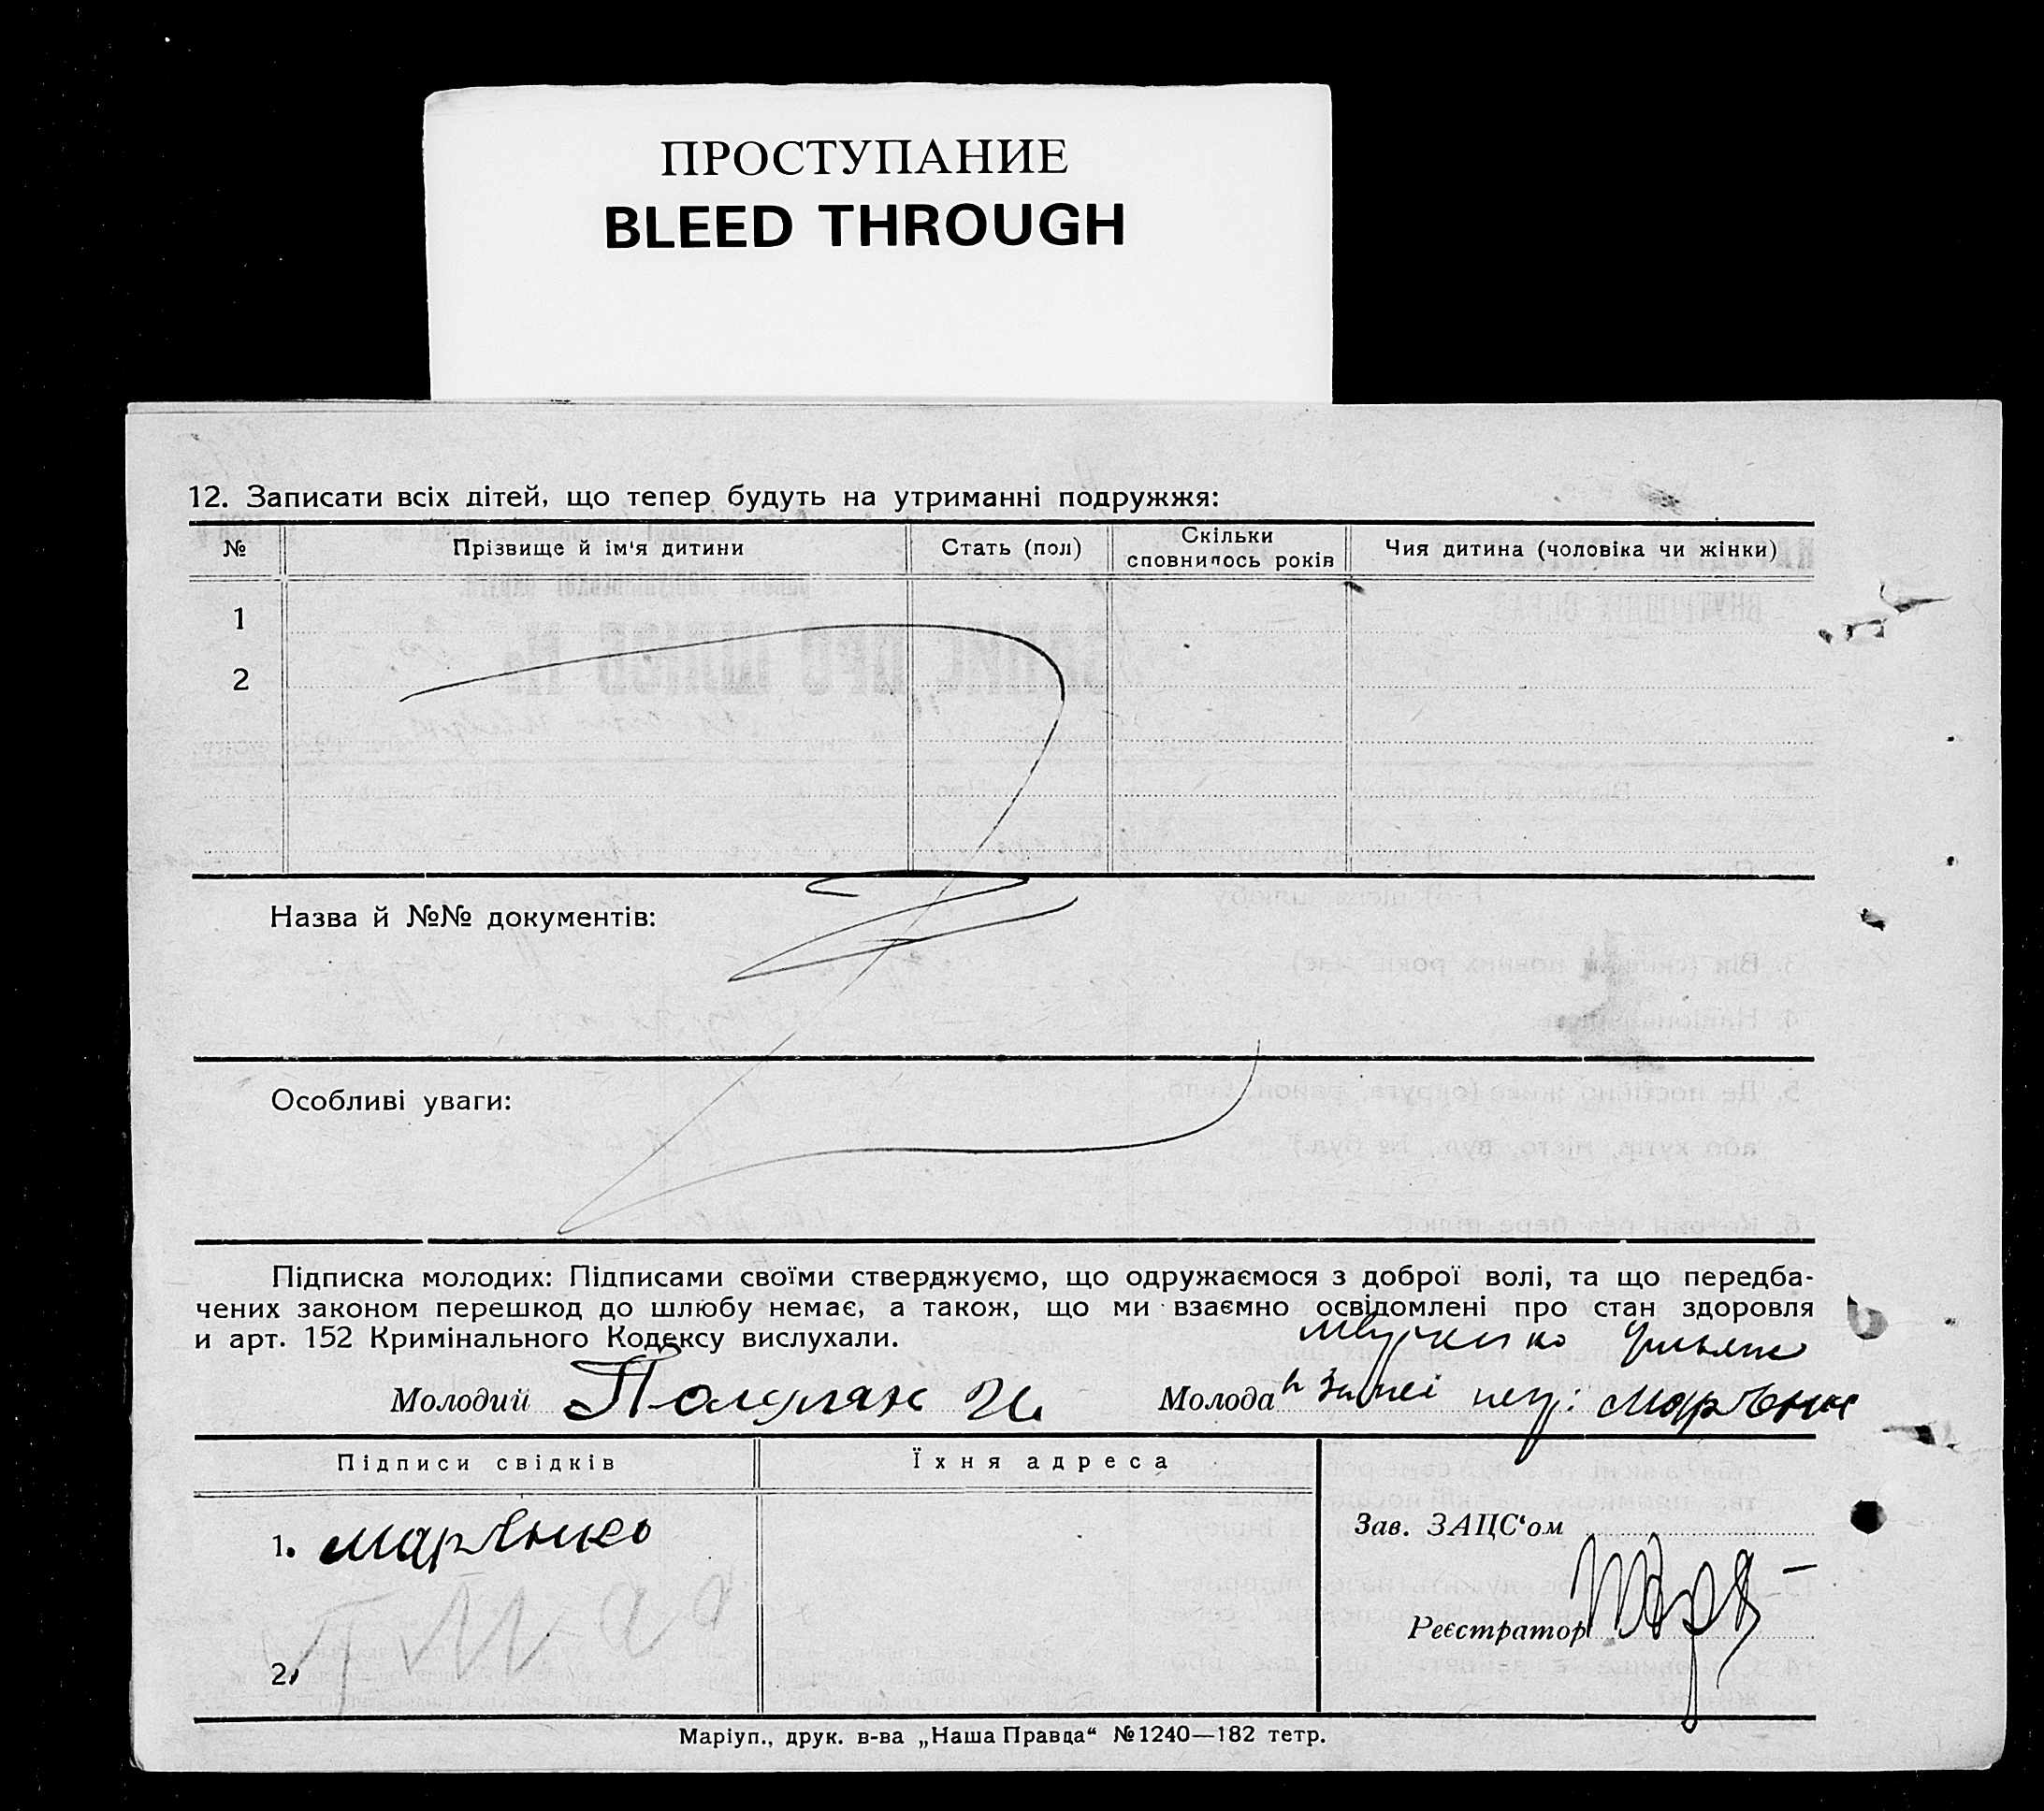 ПРОСТУПАНИЕ
BLEED THROUGH
12. Записати всіх дітей, що тепер будуть на утриманні подружжя:
№ Прізвище й ім'я дитини Стать (пол) Скільки сповнилось років Чия дитина (чоловіка чи жінки)
1
2
Назва й №№ документів:
Особливі уваги:
Підписка молодих: Підписами своїми стверджуємо, що одружаємося з доброї волі, та що передба-
чених законом перешкод до шлюбу немає, а також, що ми взаємно освідомлені про стан здоровля
и арт. 152 Кримінального Кодексу вислухали.
Молодий Полулях И. Молода
Підписи свідків Їхня адреса
1. Зав. ЗАЦС'ом
Реєстратор
2.
Маріуп., друк. в-ва „Наша Правда“ №1240—182 тетр.